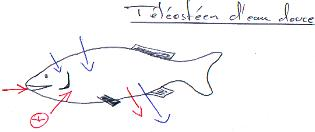 Téléostéen d'eau douce